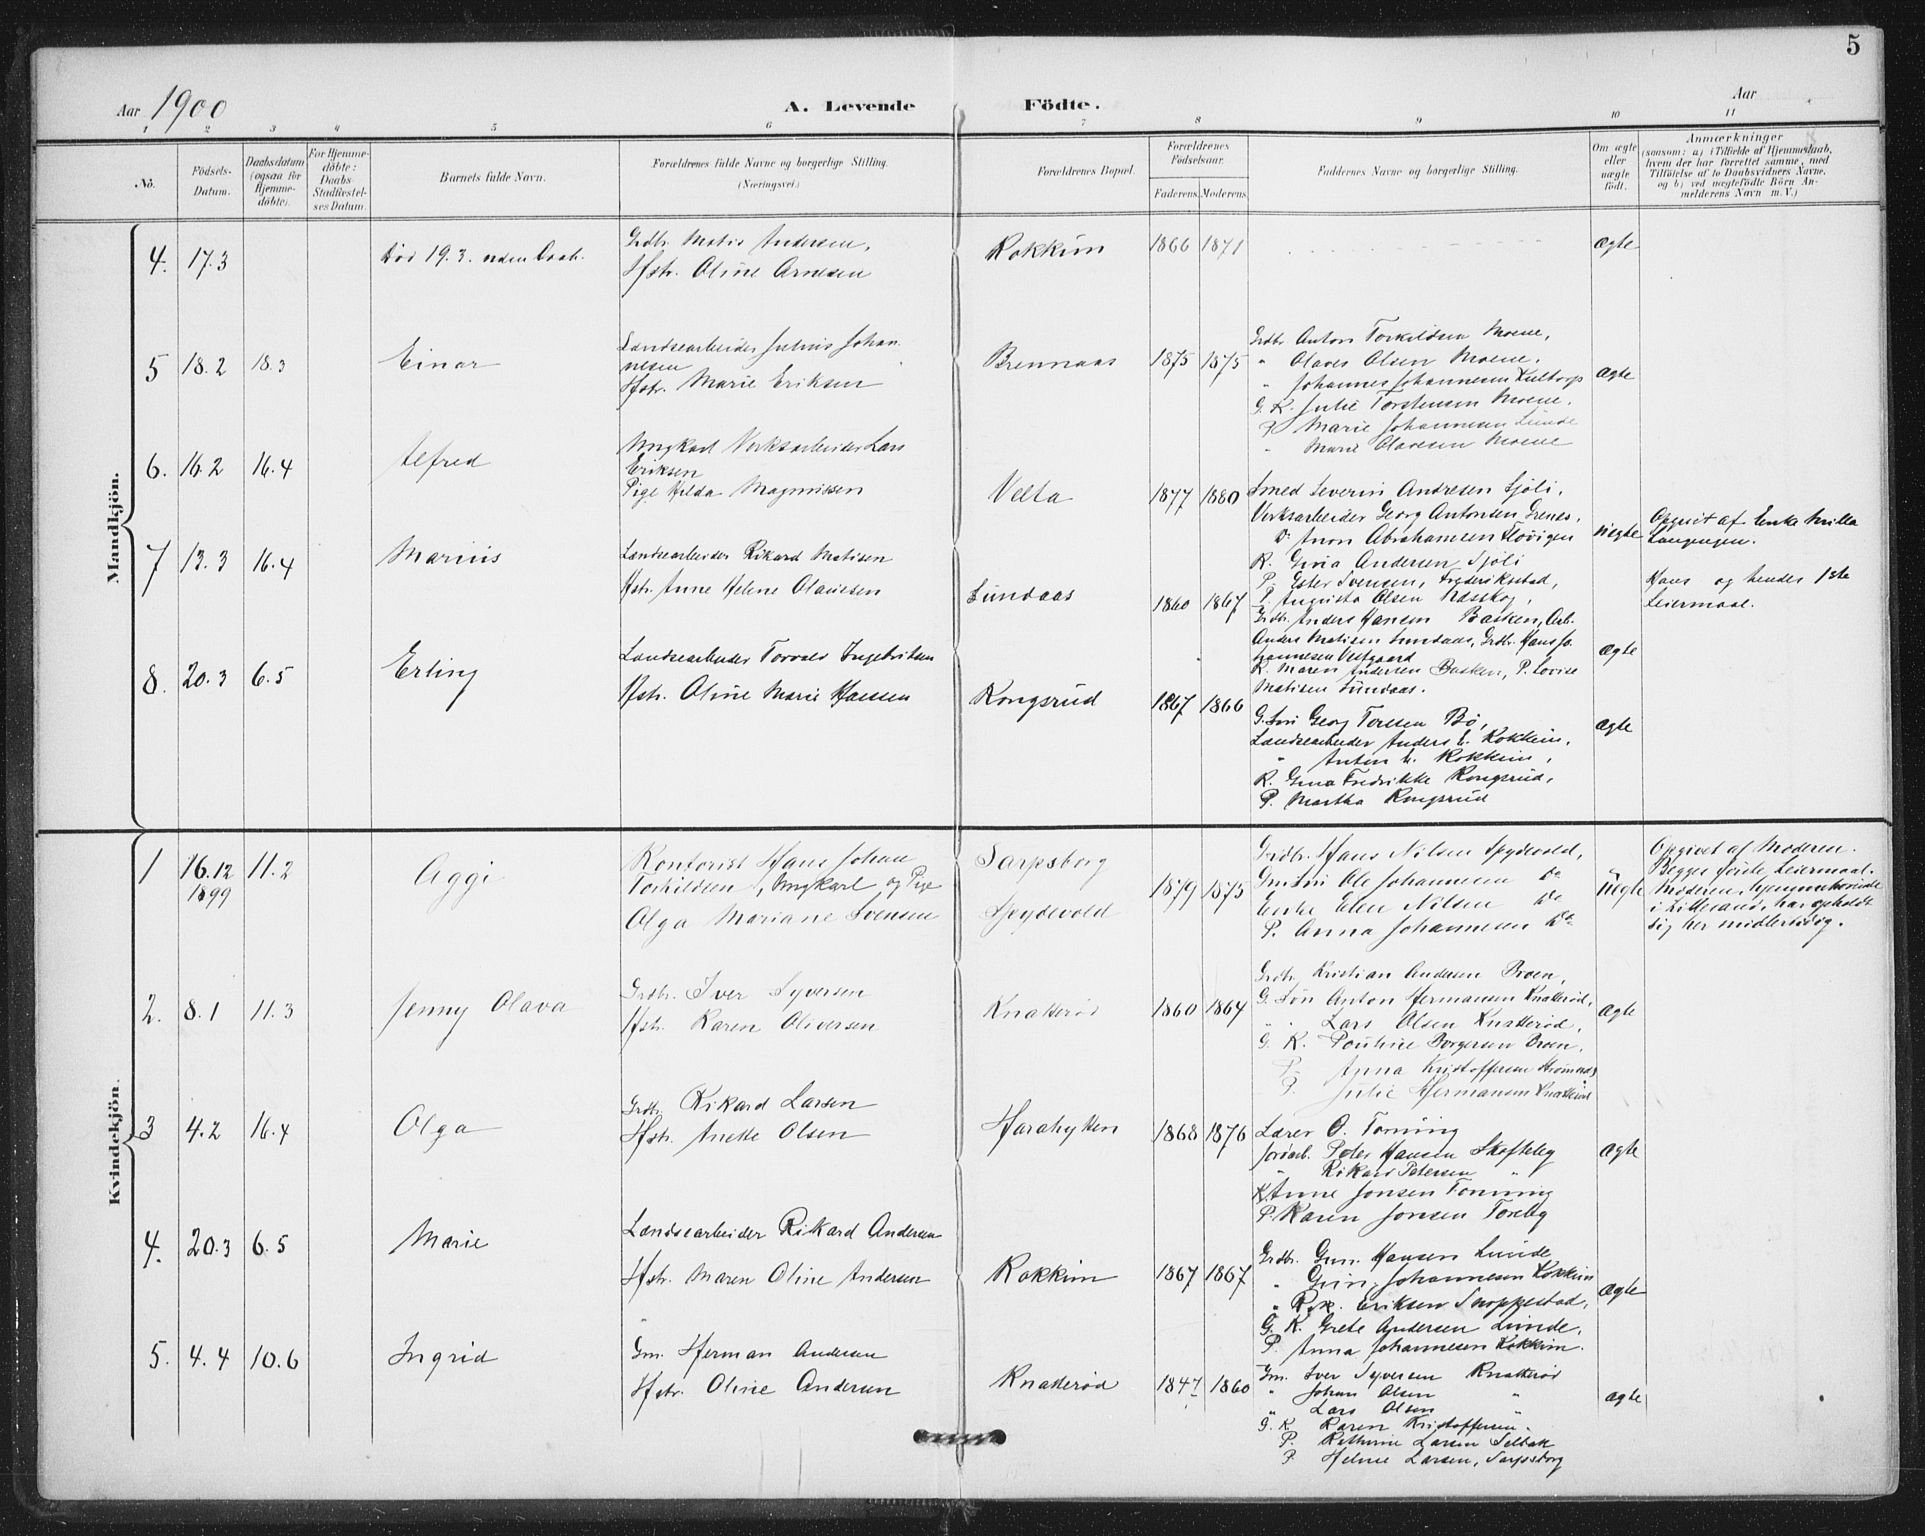 5
Aar 1900
A. Levende Födte.
Aar
1 2 3 4 5 6 7 8 9 10 11
No.
Födsels-Datum.
Daabsdatum (ogsaa for Hjemme-döbte).
For Hjemme-döbte: Daabs-Stadfæstel-ses Datum.
Barnets fulde Navn.
Forældrenes fulde Navne og borgerlige Stilling. (Næringsvei.)
Forældrenes Bopæl.
Forældrenes Födselsaar.
Faderens Moderens
Faddernes Navne og borgerlige Stilling.
Om ægte eller uægte födt.
Anmærkninger
(saasom: a) i Tilfælde af Hjemmedaab, hvem der har forrettet samme, med Tilföielse af to Daabsvidners Navne, og b) ved uægtefödte Börn An-melderens Navn m. V.)
Mandkjön.
4. 17.3 Död 19.3. uden Daab.
Grdbr. Matis Andersen,
Hstr. Oline Arnesen
Rokkum 1866 1871 ægte
5 18.2 18.3 Einar
Landsearbeider Julius Johan
nesen
Hstr. Marie Eriksen
Brennaas 1875 1875
Grdbr. Anton Torkildsen Moene,
" Olaves Olsen Moene.
" Johannes Johannesen Kultorp
G. K. Julie Torstensen Moene.
P. Marie Johannesen Lunde
" Marie Olavesen Moene
ægte
6. 16.2 16.4 Alfred
Ungkarl Verksarbeider Lars
Eriksen
Pige Hilda Magnussen
Velta 1877 1880
Smed Severin Andresen Sjöli,
Verksarbeider Georg Antonsen Grenes,
Do Anon Abrahamsen Flovigen
K. Gina Andersen Sjöli
P. Ester Svensen, Frederikstad,
P. Augusta Olsen Næsskog,
uegte
Opgivet af Enke Milla
Langengen.
Hans og hendes 1ste
Leiermaal.
7 13.3 16.4 Marius
Landsearbeider Rikard Matisen
Hstr. Anne Helene Olavesen
Lundaas 1860 1867
Grdbr. Anders Hansen Basken, Arb.
Anders Matisen Lundaas, Grdbr. Hans Jo
hannesen Vestgaard
K. Maren Andersen Basken, P. Lovise
Matisen Lundaas.
ægte
8. 20.3 6.5 Erling
Landsearbeider Torvald Ingebritsen
Hstr. Oline Marie Hansen
Kongsrud 1867 1866
G. Sön Georg Torssen Bö,
Landsearbeider Anders H. Rokkum,
" Anton H. Rokkum,
K. Gina Fredrikke Kongsrud,
P. Martha Kongsrud
ægte
Kvindekjön.
1 16.12 11.2 Aggi
1899
Kontorist Hans Johan
Torkildsen, Ungkarl og Pige
Olga Mariane Svensen
Sarpsborg
Spydevold
1879 1875
Grdbr. Hans Nilsen Spydevold,
Gm Sön Ole Johannesen Do
Enke Elen Nilsen Do
P. Anna Johannesen Do
uegte
Opgivet af Moderen.
Begges förste Leiermaal.
Moderen, hjemmehörende
i Lillesand, har opholdt
sig her midlertidig.
2. 8.1 11.3 Jenny Olava
Grdbr. Iver Syversen
Hstr. Karen Oliversen
Knatteröd 1860 1864
Grdbr. Kristian Andersen Broen,
G. Sön Anton Hermansen Knatteröd,
" " Lars Olsen Knatteröd,
G. K. Pauline Borgersen Broen,
P. Anna Kristoffersen
P. Julie Hermansen Knatteröd
ægte
3 4.2 16.4 Olga
Grdbr. Rikard Larsen
Hstr. Anette Olsen
Harahytten 1868 1876
Lærer O. Torning
Jordarb. Peter Hansen Skofteby
" Rikard Petersen "
K. Anne Jonsen Torning
P. Karen Jonsen Toreby
ægte
4. 20.3 6.5 Marie
Landsearbeider Rikard Andersen
Hstr. Maren Oline Andersen
Rokkum 1867 1867
Grdbr. Gun. Hansen Lunde
" Gun. Johannesen Rokkum
" Rik. Eriksen Snoppestad,
G. K. Grete Andersen Lunde,
P. Anna Johannesen Rokkum.
ægte
5. 4.4 10.6 Ingrid
Gm. Herman Andersen
Hstr. Oline Andersen
Knatteröd 1847 1860
Gm. Iver Syversen Knatteröd
" Johan Olsen "
" Lars Olsen "
G. K. Karen Kristoffersen.
P. Kathrine Larsen Selbak
P. Helene Larsen, Sarpsborg
ægte